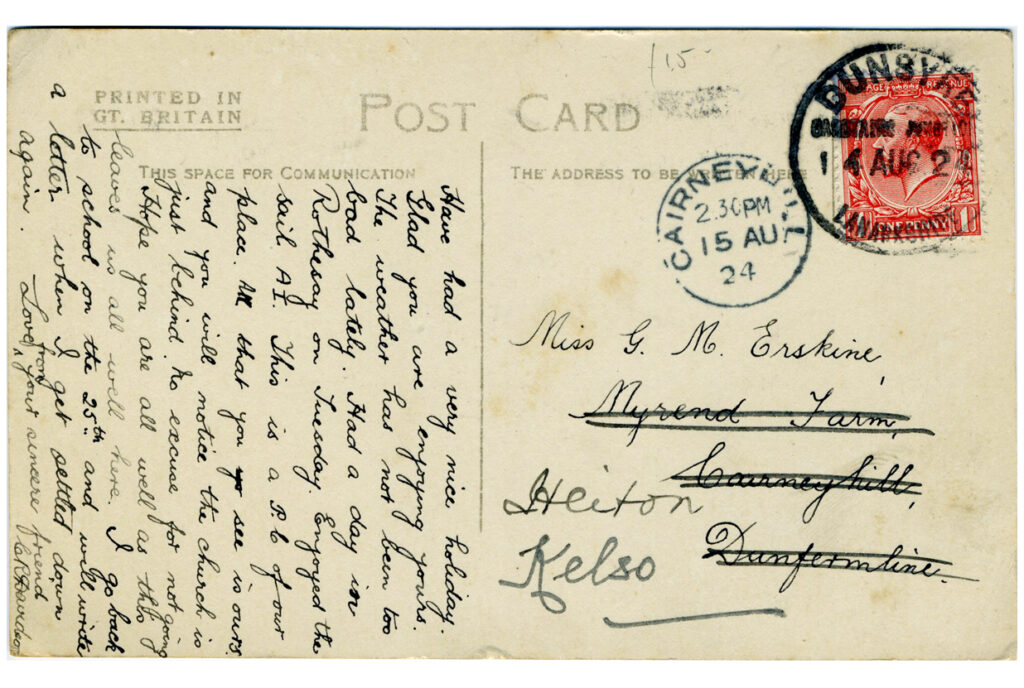 PRINTED IN
GT. BRITAIN
POST CARD
THIS SPACE FOR COMMUNICATION
THE ADDRESS TO BE WRITTEN HERE
Have had a very nice holiday.
Glad you are enjoying yours.
The weather has not been too
bad lately. Had a day in
Rothesay on Tuesday. Enjoyed the
sail A1. This is a P.C of our
place. All that you see is ours
and you will notice the church is
just behind. No excuse for not going
Hope you are all well as this
leaves us all well here. I go back
to school on the 25th and will write
a letter when I get settled down
again. Love from your sincere friend
15
DUNSYRE
14 AUG 24
LANARKSHIRE
ONE PENNY
CAIRNEYHILL
2.30PM
15 AU
24
Miss G. M. Erskine
Myrend Farm,
Cairneyhill,
Dunfermline.
Heiton
Kelso